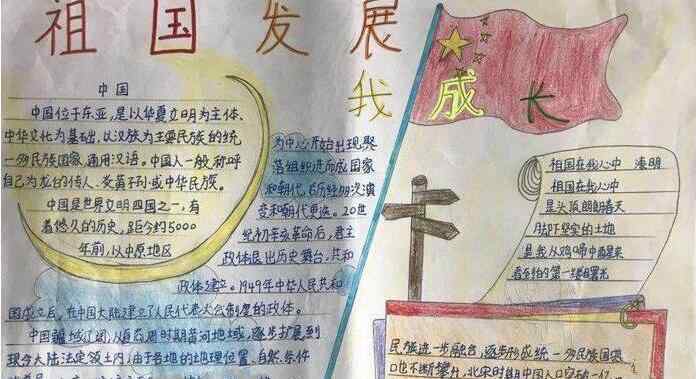 祖国发展
我成长
中国
中国位于东亚,是以华夏文明为主体、
中华文化为基础,以汉族为主要民族的统
一多民族国家,通用汉语。中国人一般称呼
自己为龙的传人、炎黄子孙或中华民族。
中国是世界文明四国之一,有
着悠久的历史,距今约5000
年前,以中原地区
为中心开始出现聚
落组织进而成国家
和朝代,后历经多次演
变和朝代更迭。20世
纪初辛亥革命后,君主
政体退出历史舞台,共和
政体建立。1949年中华人民共和
国成立后,在中国大陆建立了人民代表大会制度的政体。
中国疆域辽阔,
逐步扩展到
现今大陆法定领土内,由于各地的地理位置、自然条件
祖国在我心中
祖国在我心中
是头顶朗朗春天
脚下坚实的土地
是我从鸡啼中醒来
看到的第一缕曙光
民族进一步融合,逐步形成统一多民族国家
口也不断攀升,北宋时期中国人口突破一亿